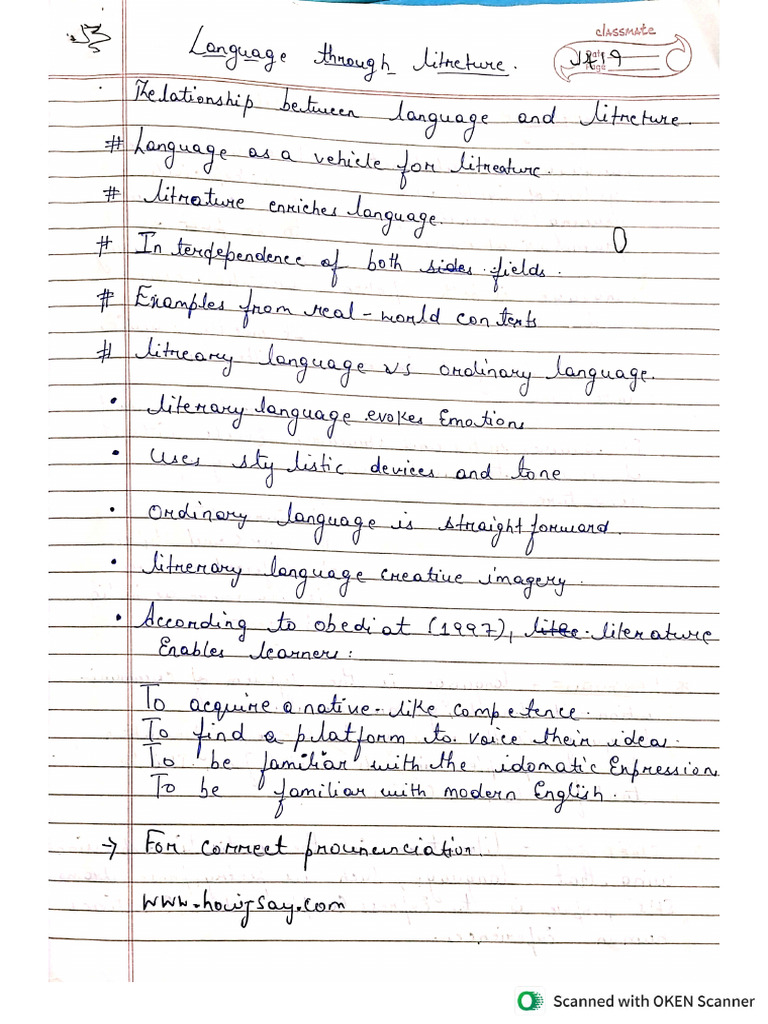 classmate
Language through litreture.
Date
Page
Relationship between language and litreture.
# Language as a vehicle for litreature.
# litrature enriches language.
# In terdependence of both sides fields.
# Examples from real-world con texts
# litreary language vs ordinary language.
• literary language evokes Emotions
• uses sty listic devices and tone
• Ordinary language is straight forward.
• litrerary language creative imagery.
• According to obediat (1997), litre literature
Enables learners:
To acquire a native-like competence.
To find a platform to voice their ideas.
To be familiar with the idomatic Expression
To be familiar with modern English.
→ For correct prounenciation.
www.howjsay.com
Scanned with OKEN Scanner